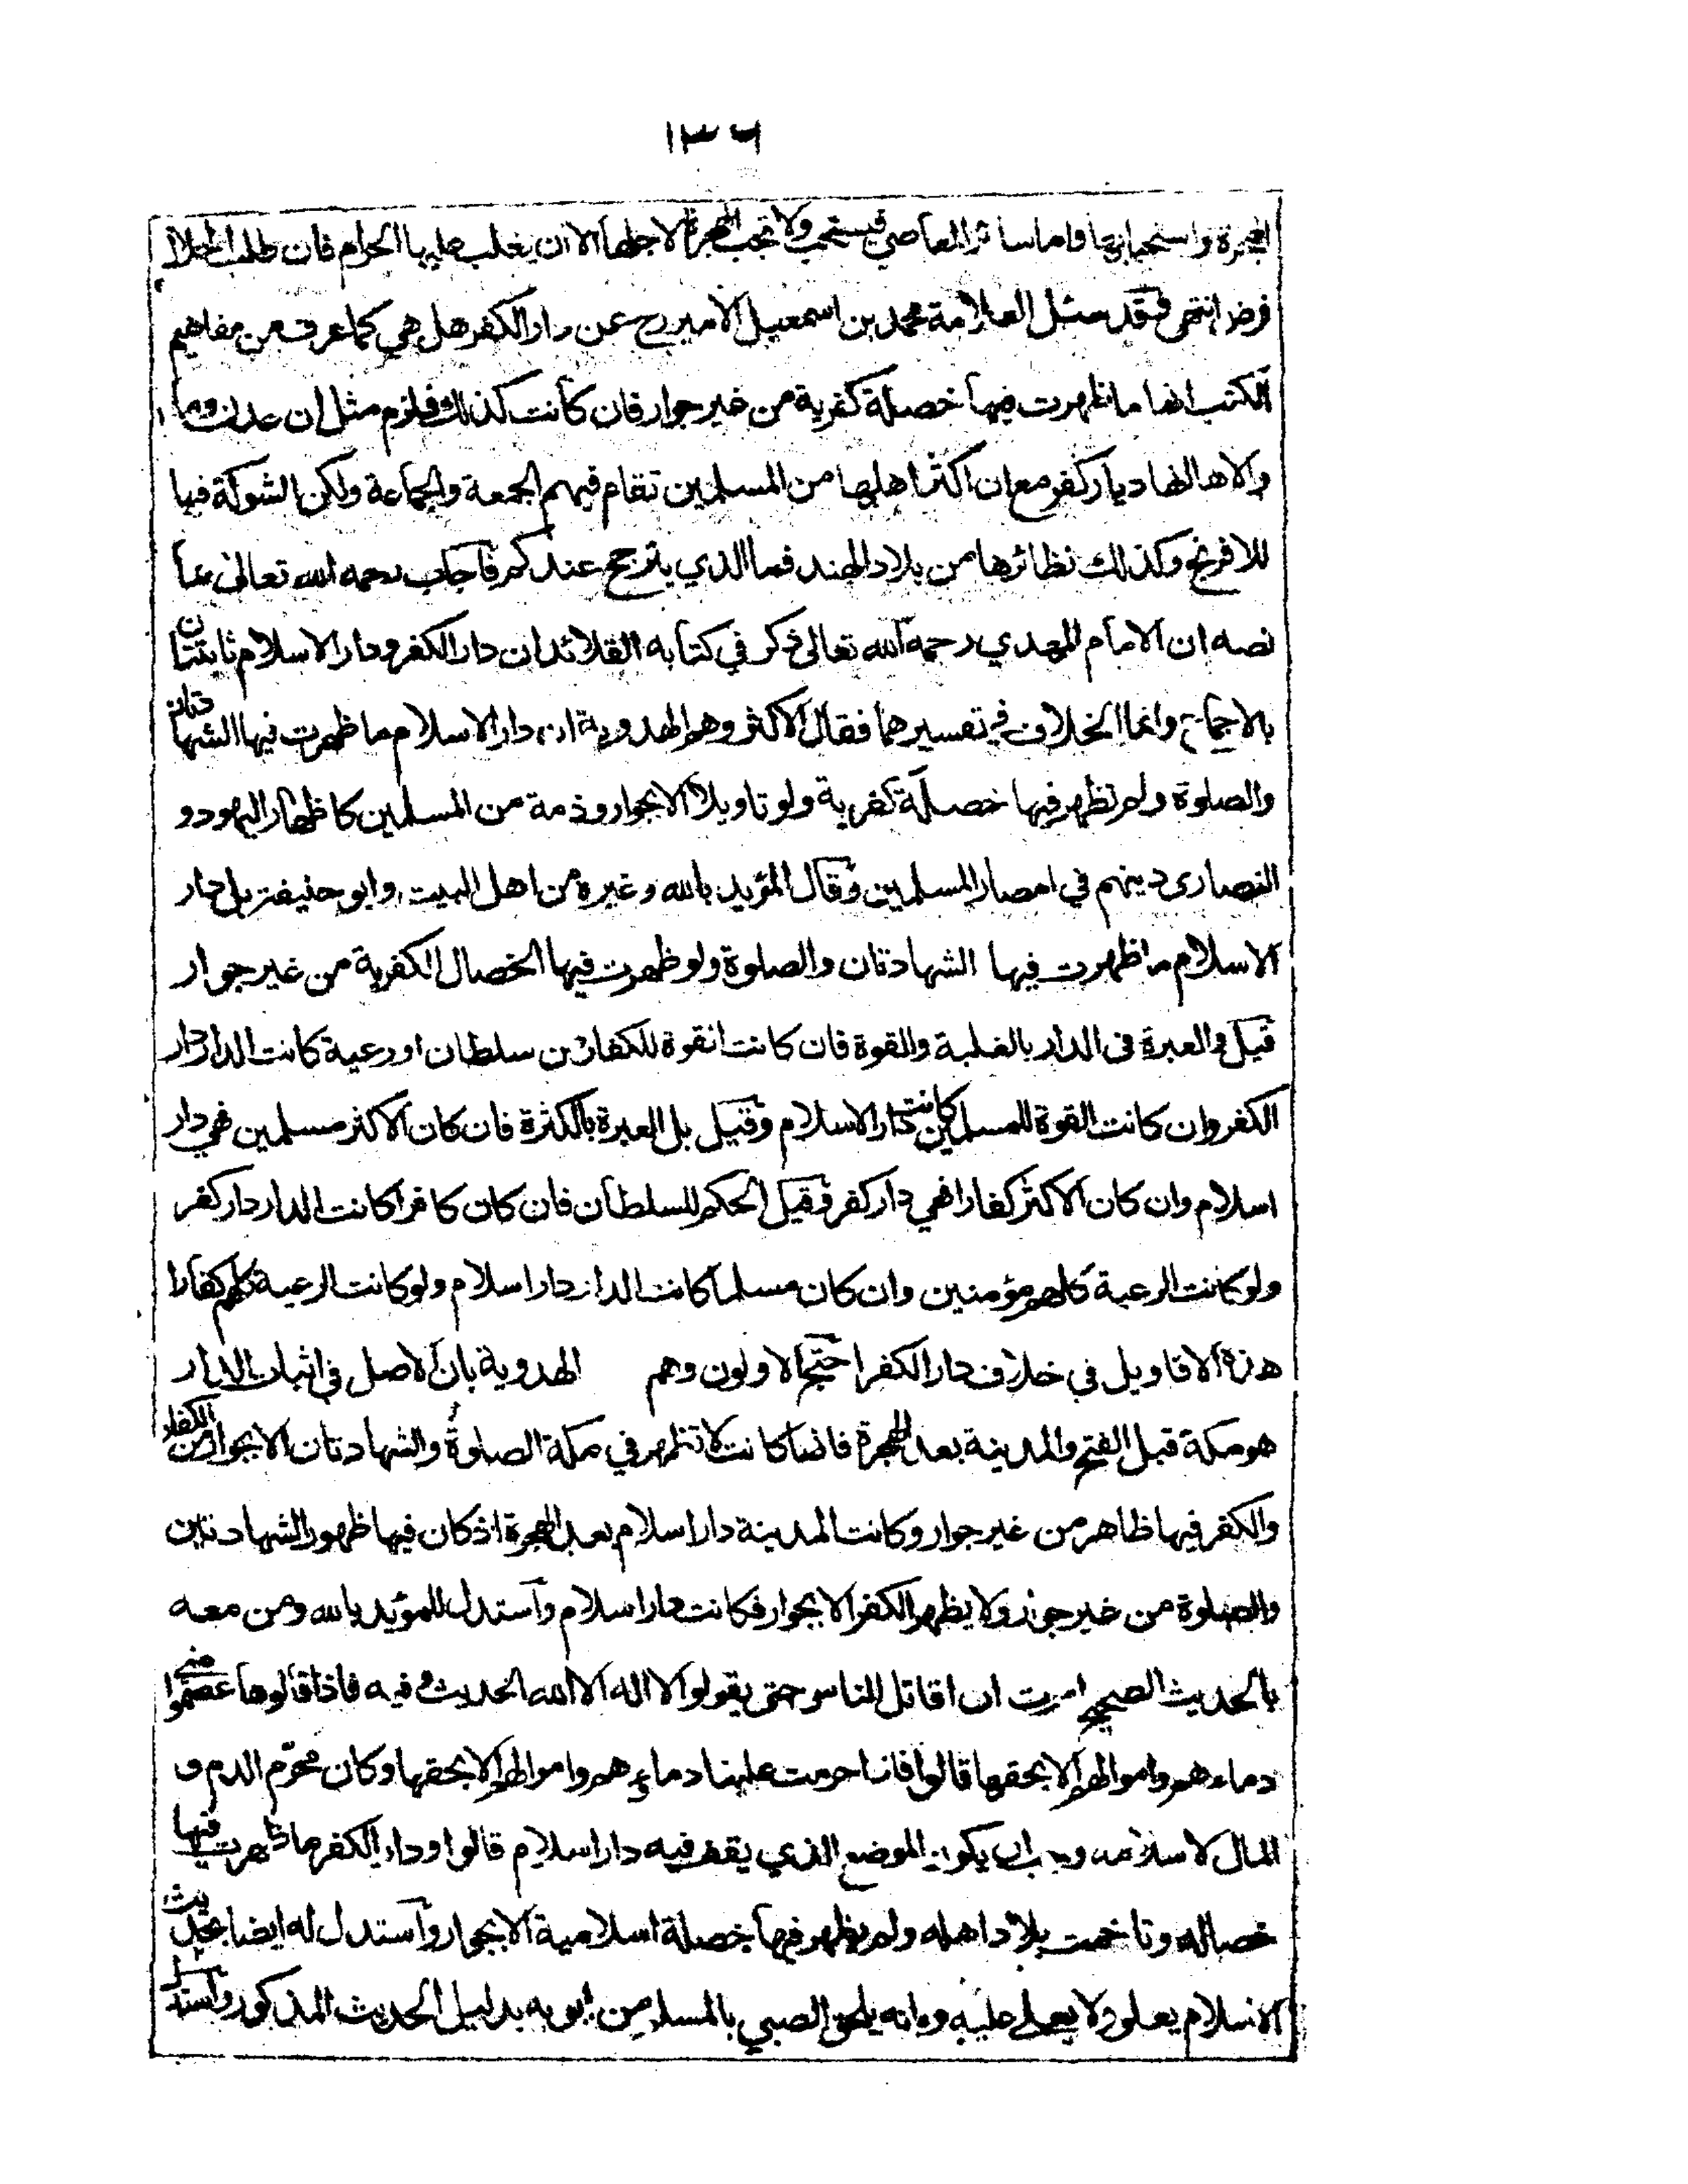 ١٣٦
الهجرة واستحبابها فاما سائر المعاصي فيستحب ولا تجب الهجرة لاجلها الا ان يغلب عليها الحرام فان طلب الحلال
فرض انتهى وقد سئل العلامة محمد بن اسمعيل الامير رح عن دار الكفر هل هي كما عرف من مفاهيم
الكتب انها ما ظهرت فيها خصلة كفرية من غير جوار فان كانت كذلك فلزم مثل ان عدن وما
والاها انها ديار كفر مع ان اكثر اهلها من المسلمين تقام فيهم الجمعة والجماعة ولكن الشوكة فيها
للافرنج وكذلك نظائرها من بلاد الهند فما الذي يترجح عندكم فاجاب رحمه الله تعالى بما
نصه ان الامام المهدي رحمه الله تعالى ذكر في كتابه القلائد ان دار الكفر ودار الاسلام ثابتتان
بالاجماع وانما الخلاف في تفسيرهما فقال الاكثر وهم الهدوية ان دار الاسلام ما ظهرت فيها الشهادتان
والصلوة ولم تظهر فيها خصلة كفرية ولو تاويلا الا بجوار وذمة من المسلمين كاظهار اليهود و
النصارى دينهم في امصار المسلمين وقال المؤيد بالله وغيره من اهل البيت وابو حنيفة بل دار
الاسلام ما ظهرت فيها الشهادتان والصلوة ولو ظهرت فيها الخصال الكفرية من غير جوار
قيل والعبرة في الدار بالغلبة والقوة فان كانت القوة للكفار من سلطان او رعية كانت الدار دار
الكفر وان كانت القوة للمسلمين كانت دار الاسلام وقيل بل العبرة بالكثرة فان كان الاكثر مسلمين فهي دار
اسلام وان كان الاكثر كفارا فهي دار كفر وقيل الحكم للسلطان فان كان كافرا كانت الدار دار كفر
ولو كانت الرعية كلهم مؤمنين وان كان مسلما كانت الدار دار اسلام ولو كانت الرعية كلهم كفارا
هذه الاقاويل في خلاف دار الكفر احتج الاولون وهم الهدوية بان الاصل في اثبات الدار
هو مكة قبل الفتح والمدينة بعد الهجرة فانها كانت لا تظهر في مكة الصلوة والشهادتان الا بجوار من الكفار
والكفر فيها ظاهر من غير جوار وكانت المدينة دار اسلام بعد الهجرة اذ كان فيها ظهور الشهادتين
والصلوة من غير جوار ولا يظهر الكفر الا بجوار فكانت دار اسلام واستدل للمؤيد بالله ومن معه
بالحديث الصحيح امرت ان اقاتل الناس حتى يقولوا لا اله الا الله الحديث وفيه فاذا قالوها عصموا مني
دماءهم واموالهم الا بحقها قالوا فانها حرمت علينا دماءهم واموالهم الا بحقها وكان محرم الدم و
المال لاسلامه وجب ان يكون الموضع الذي يقف فيه دار اسلام قالوا ودار الكفر ما ظهرت فيها
خصاله وتاخمت بلاد اهله ولم يظهر فيها خصلة اسلامية الا بجوار واستدل له ايضا بحديث
الاسلام يعلو ولا يعلى عليه وبانه يلحق الصبي بالمسلم من ابويه بدليل الحديث المذكور واستدل